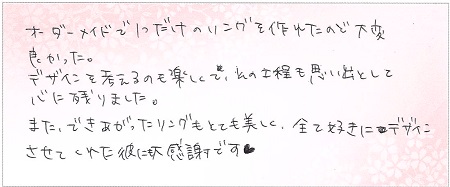 オーダーメイドで1つだけのリングを作れたので大変
良かった。
デザインを考えるのも楽しくて、その工程も思い出として
心に残りました。
また、できあがったリングもとても美しく、全て好きにデザイン
させてくれた彼に大感謝です♥